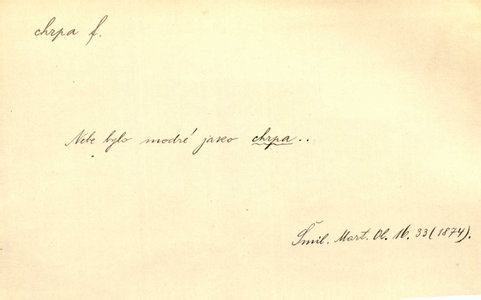 chrpa f.
Nebe bylo modré jako chrpa..
Šmil. Mart. Ol. 16. 33 (1874).